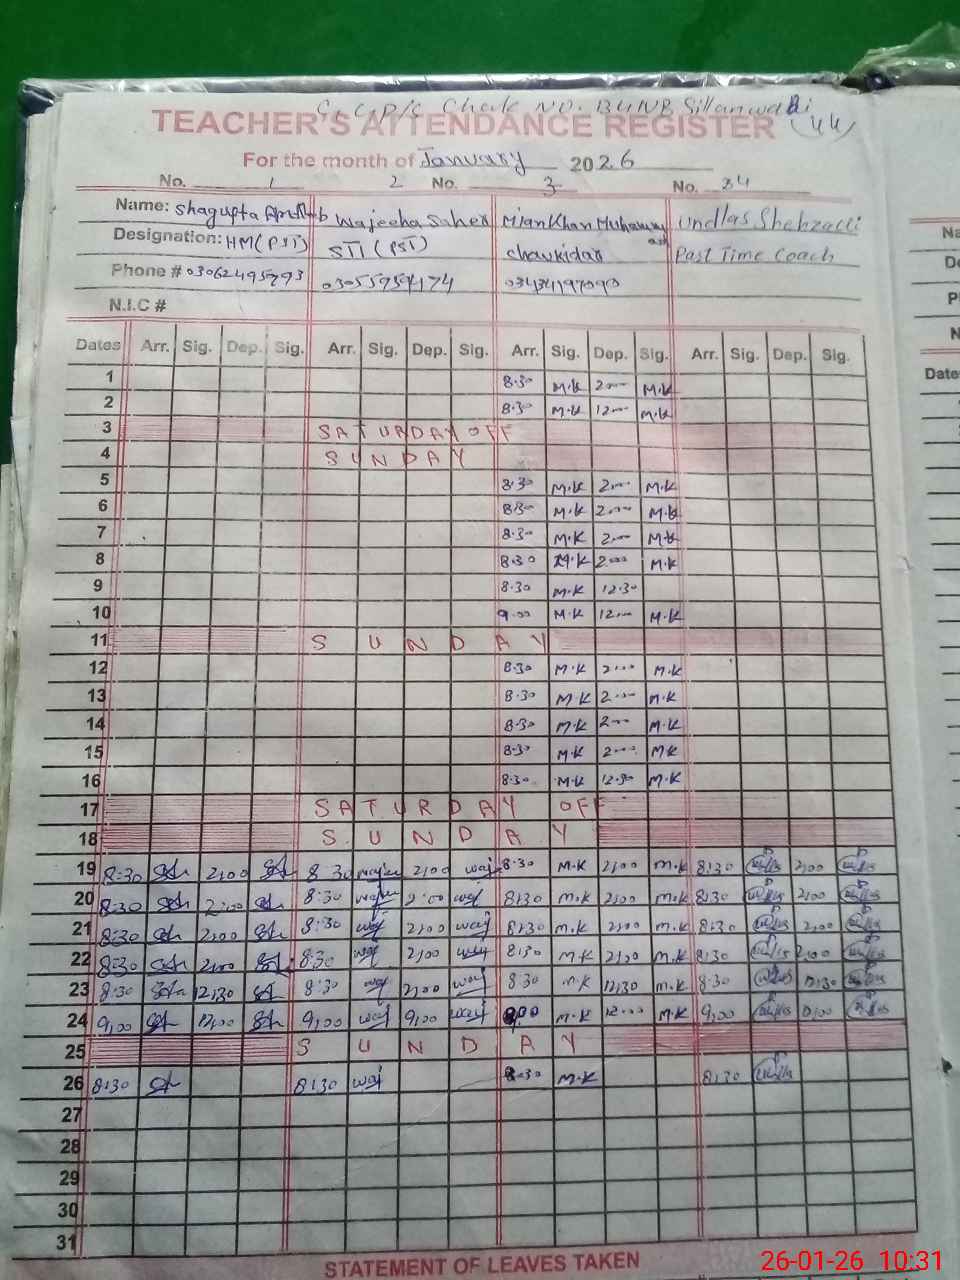 G.G.P/S Chak NO. 134NB Sillanwali
TEACHER'S ATTENDANCE REGISTER (44)
For the month of January 2026
No. 1 2 No. 3 No. 34
Name: Shagufta Wajeeha Saher Mian Khan Muhammad Shehzadi
Designation: HM(PST) STI (PST) Chawkidar Past Time Coach
Phone # 03062495793
N.I.C #
Dates Arr. Sig. Dep. Sig. Arr. Sig. Dep. Sig. Arr. Sig. Dep. Sig. Arr. Sig. Dep. Sig.
1 8:30 M.K 2:00 M.K
2 8:30 M.K 12:00 M.K
3 SATURDAY OFF
4 SUNDAY
5 8:30 M.K 2:00 M.K
6 8:30 M.K 2:00 M.K
7 8:30 M.K 2:00 M.K
8 8:30 M.K 2:00 M.K
9 8:30 M.K 12:30
10 9:00 M.K 12:00 M.K
11 SUNDAY
12 8:30 M.K 2:00 M.K
13 8:30 M.K 2:00 M.K
14 8:30 M.K 2:00 M.K
15 8:30 M.K 2:00 M.K
16 8:30 M.K 12:30 M.K
17 SATURDAY OFF
18 SUNDAY
19 8:30 2:00 8:30 waj 2:00 waj 8:30 M.K 2:00 M.K 8:30 2:00
20 8:30 2:00 8:30 waj 2:00 waj 8:30 M.K 2:00 M.K 8:30 2:00
21 8:30 2:00 8:30 waj 2:00 waj 8:30 M.K 2:00 M.K 8:30 2:00
22 8:30 2:00 8:30 waj 2:00 waj 8:30 M.K 2:00 M.K 8:30 2:00
23 8:30 12:30 8:30 waj 2:00 waj 8:30 M.K 12:30 M.K 8:30 12:30
24 9:00 12:00 9:00 waj 9:00 waj 9:00 M.K 12:00 M.K 9:00
25 SUNDAY
26 8:30 8:30 waj 8:30 M.K 8:30
27
28
29
30
31
STATEMENT OF LEAVES TAKEN
26-01-26 10:31
Date